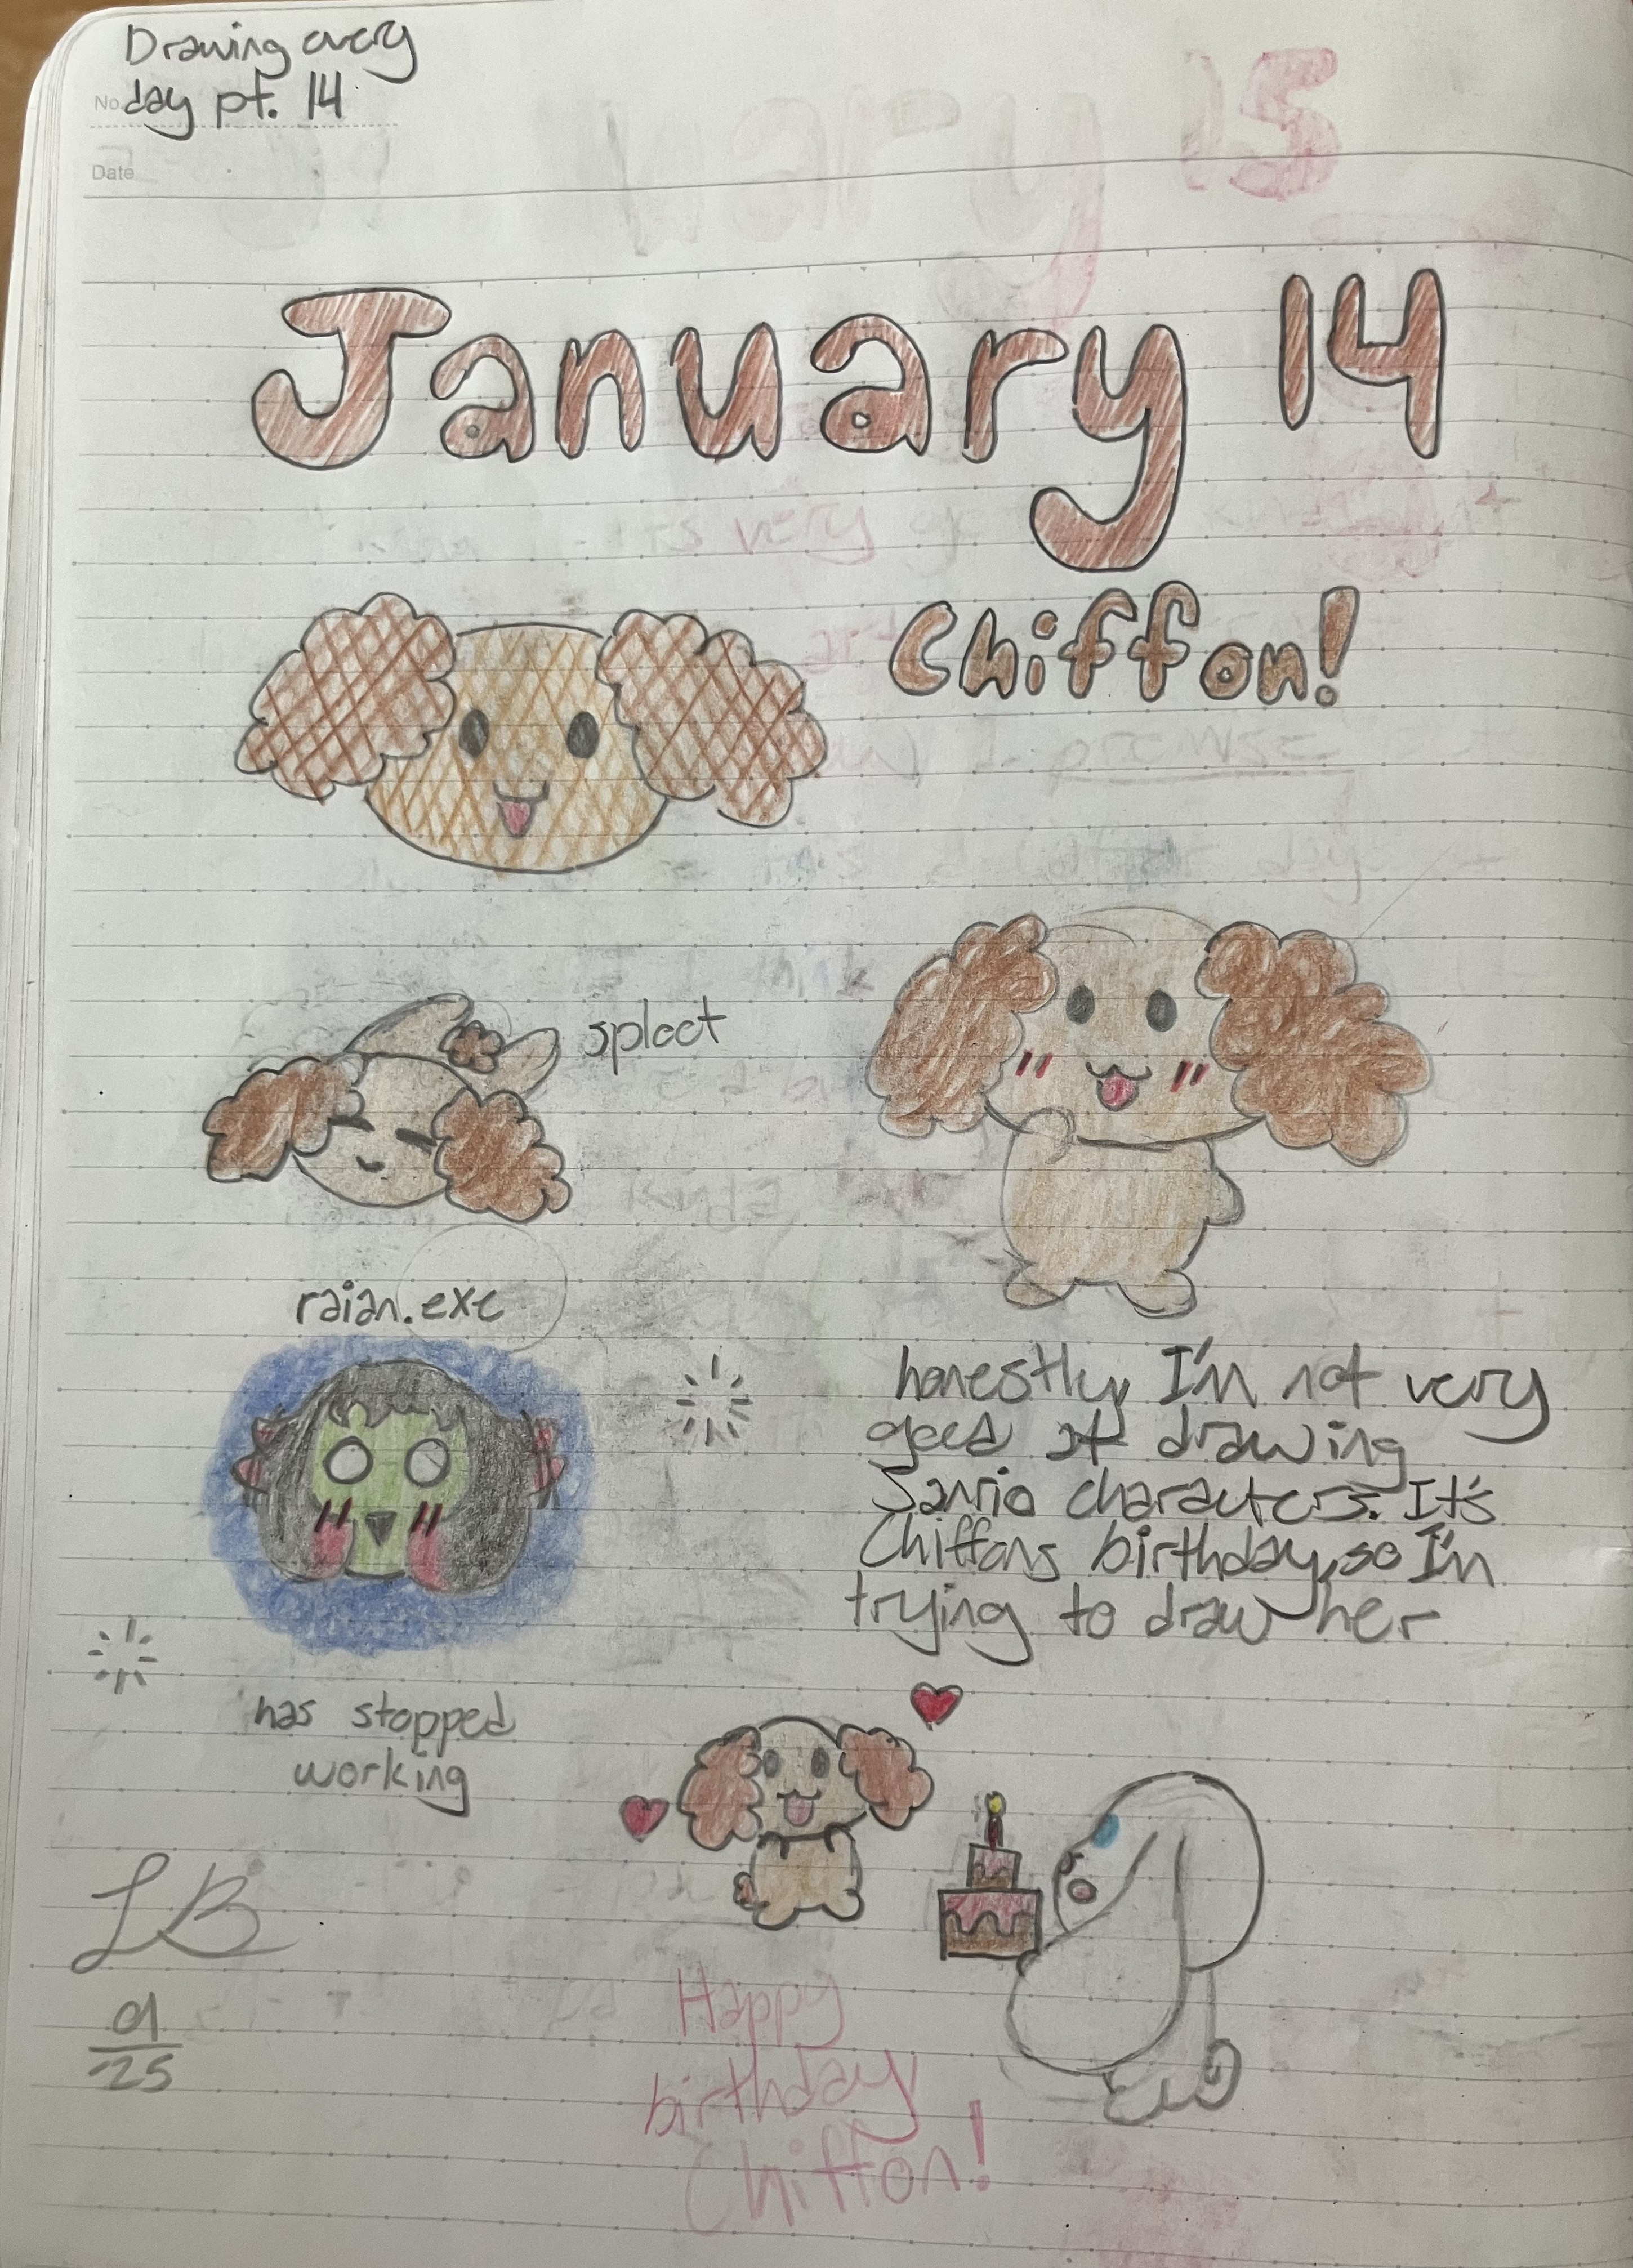 Drawing every
day pt. 14
No.
Date
January 14
Chiffon!
sploot
raian.exe
has stopped
working
honestly, I'm not very
good at drawing
Sanrio characters. It's
Chiffons birthday, so I'm
trying to draw her
LB
Happy
birthday
Chiffon!